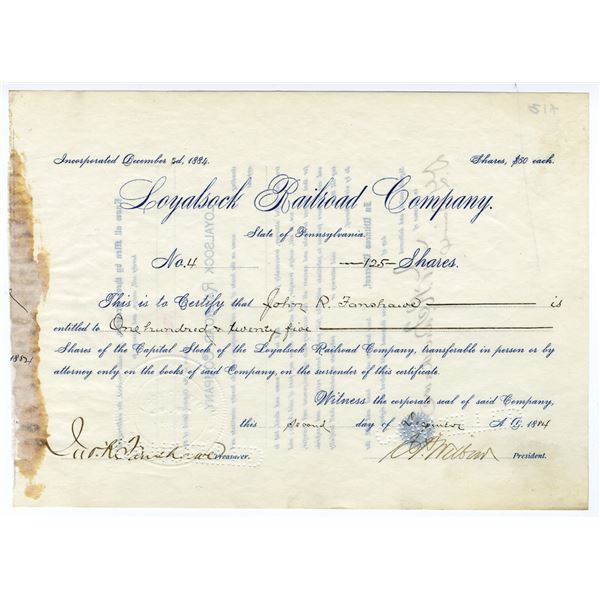 Incorporated December 2d, 1884. Shares, $50 each.
Loyalsock Railroad Company.
State of Pennsylvania.
No. 4 125 Shares.
This is to Certify that John R. Fanshawe is
entitled to One hundred & twenty five
Shares of the Capital Stock of the Loyalsock Railroad Company, transferable in person or by
attorney only on the books of said Company, on the surrender of this certificate.
Witness the corporate seal of said Company,
this second day of December A. D. 1884
Jno. R. Fanshawe Treasurer. President.